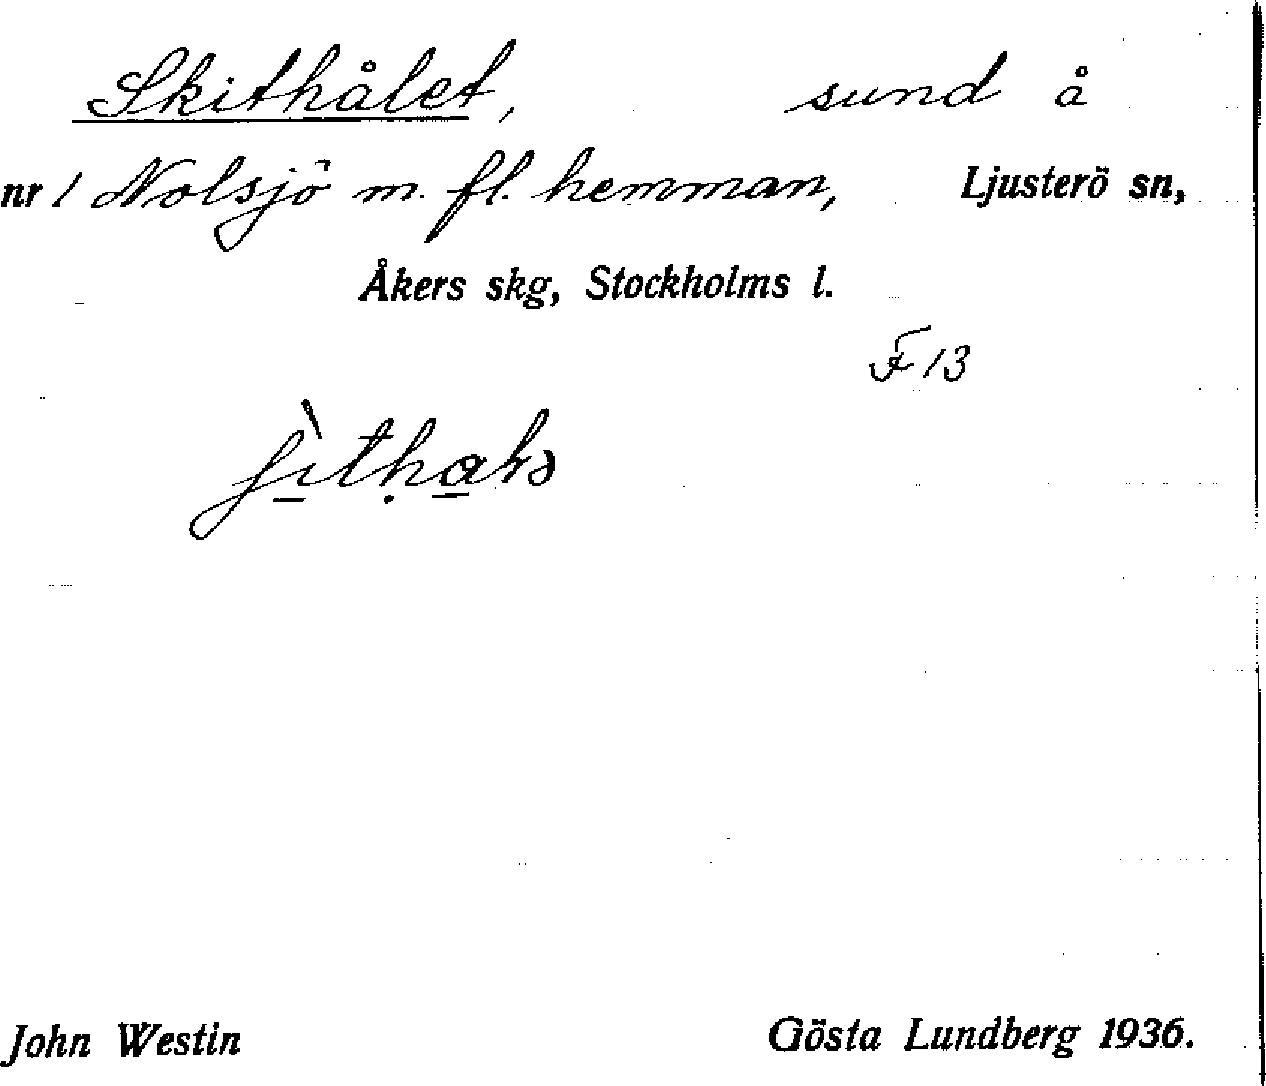 Skithålet, sund å
nr 1 Nolsjö m. fl. hemman, Ljusterö sn,
Åkers skg, Stockholms l.
F 13
John Westin Gösta Lundberg 1936.